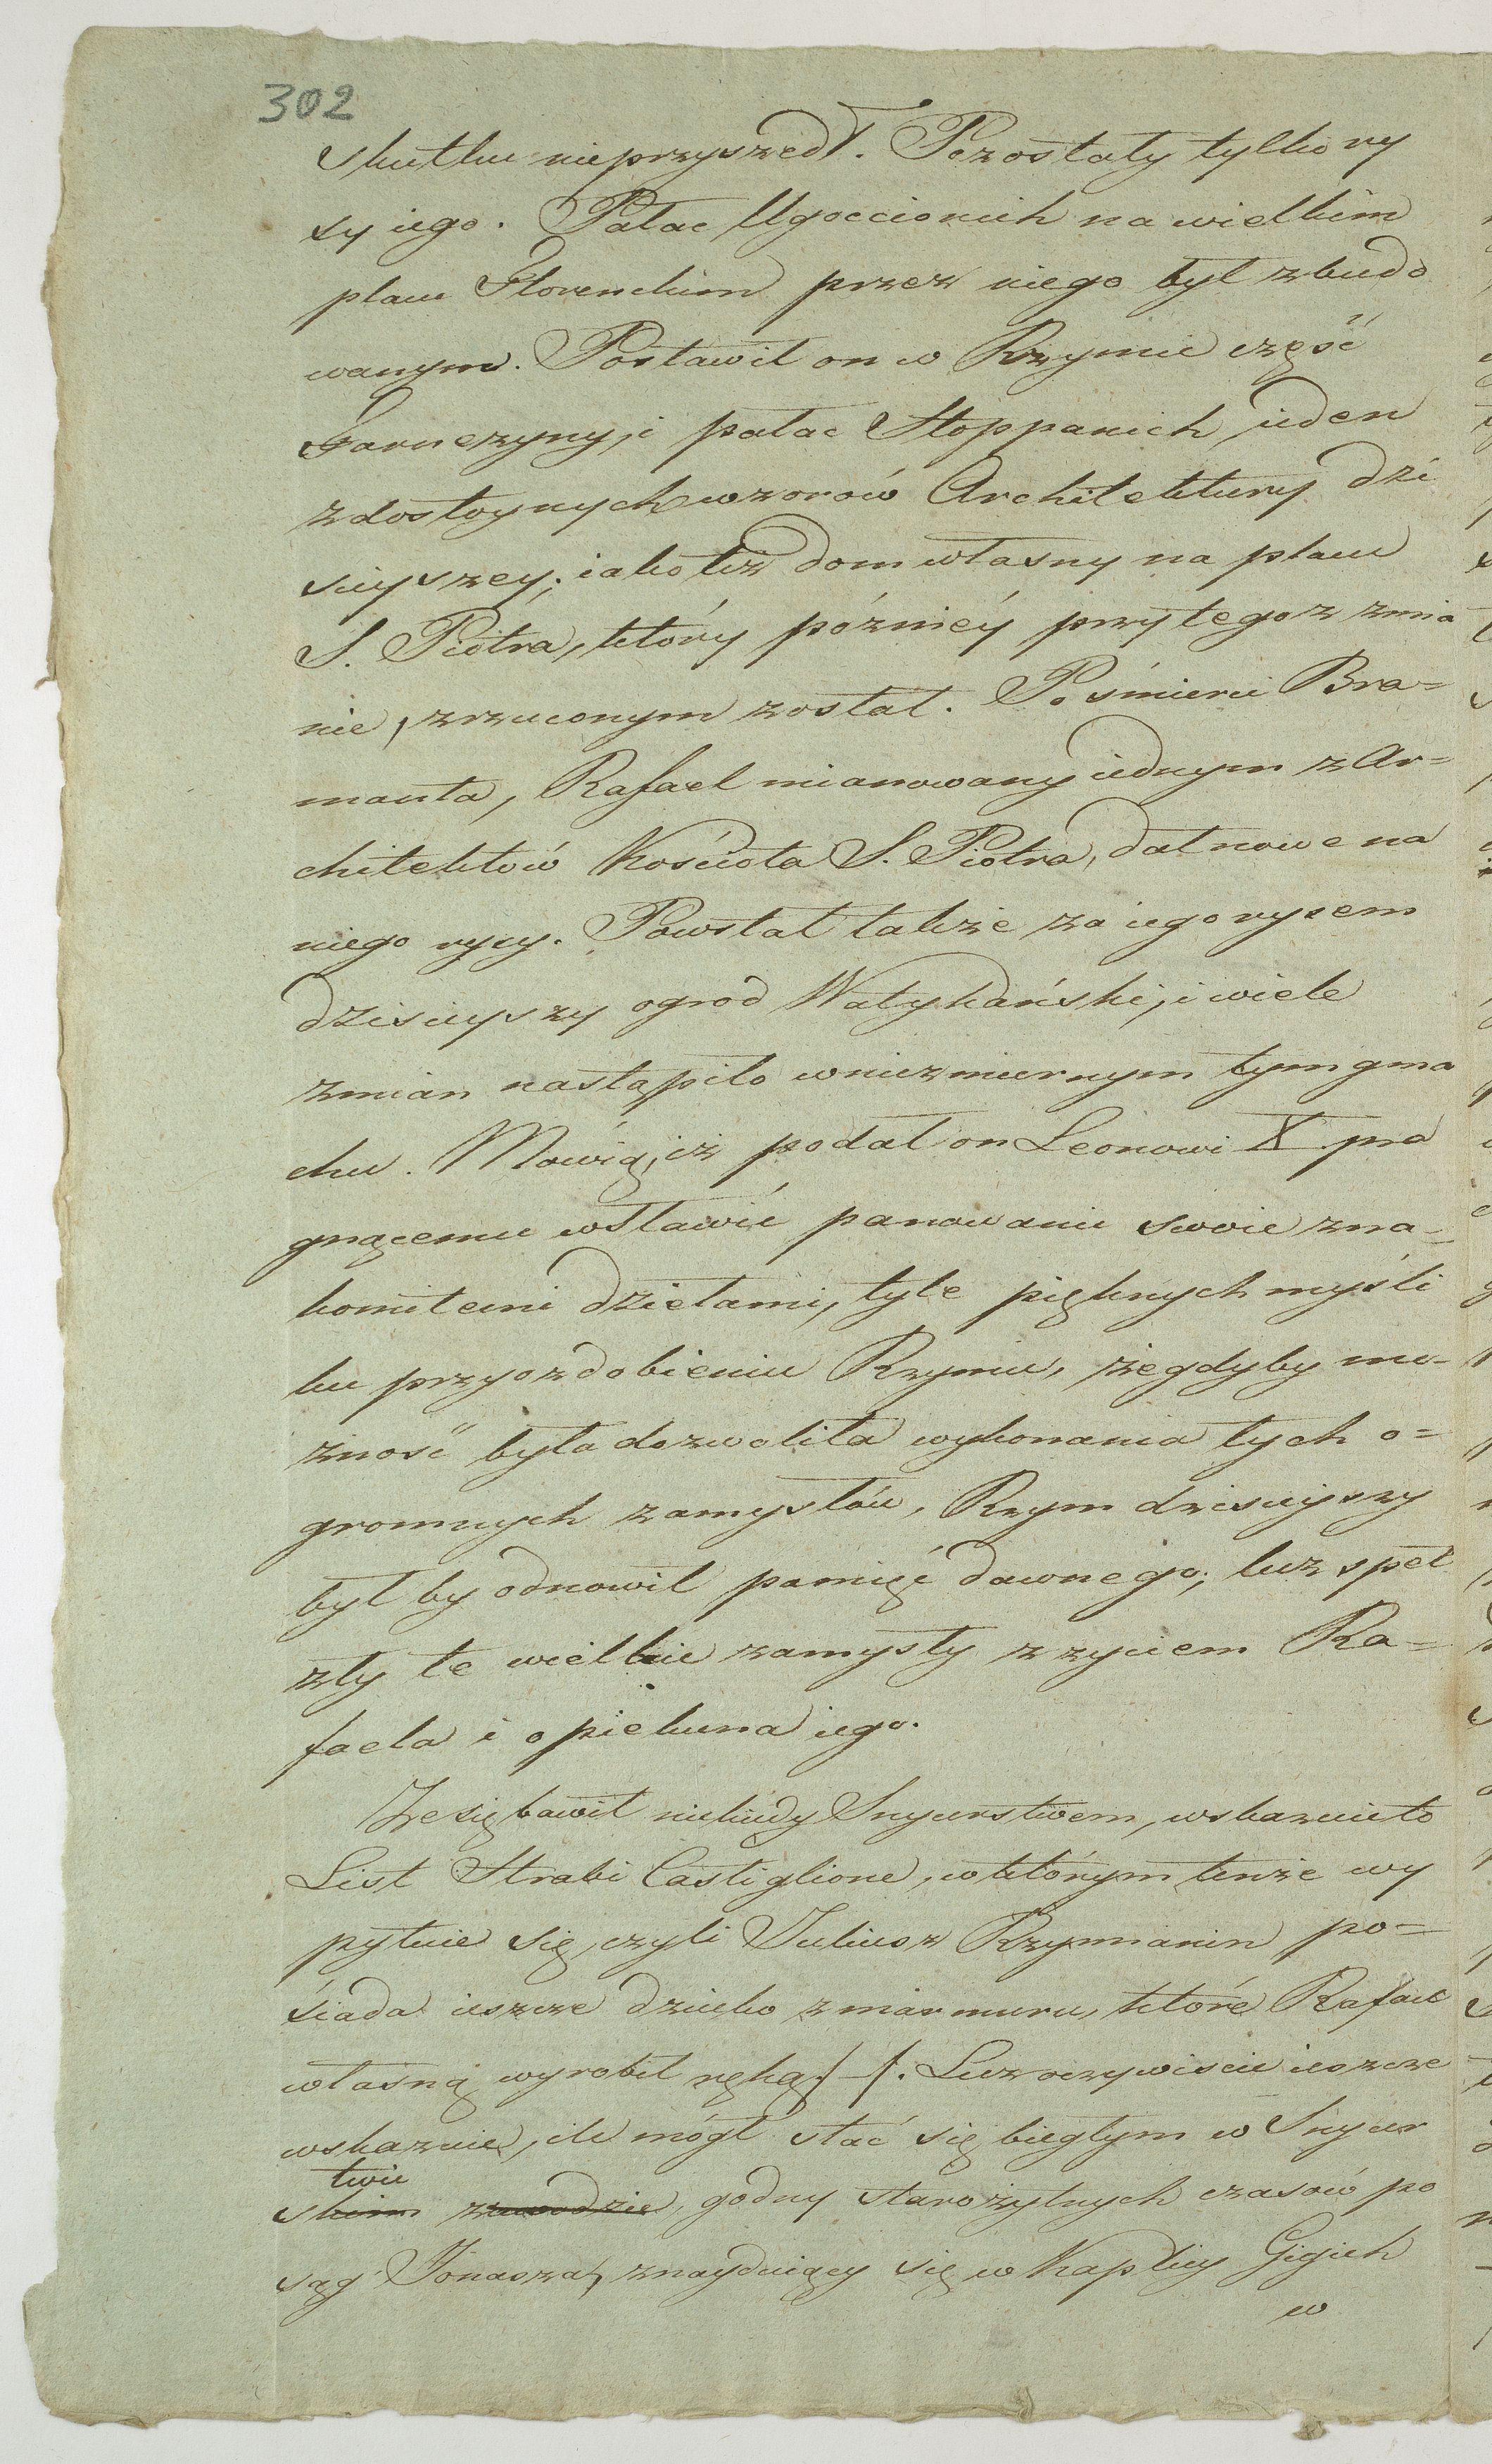 302
skutku nieprzyszedł. Pozostały tylko ry
sy iego. Pałac Ugoccionich na wielkim
placu Florenckim przez niego był zbudo
wanym. Postawił on w Rzymie część
Farnezyny, i pałac Stoppanich, ieden
z dostoynych wzorów Architektury dzi
sieyszey; iako też dom własny na placu
S. Piotra, który późniéy przy tegoż zmia
nie, zrzuconym został. Po śmierci Bra=
manta, Rafael mianowany iednym z Ar=
chitektów Kościoła S. Piotra, dał nowe na
niego rysy. Powstał także za iego rysem
dzisieyszy ogrod Watykański, i wiele
zmian nastąpiło w niezmiernym tym gma
chu. Mówią, iż podał on Leonowi X pra
gnącemu wsławić panowanie swoie zna=
komitemi dziełami, tyle pięknych myśli
ku przyozdobieniu Rzymu, że gdyby mo-
żność była dozwoliła wykonania tych o=
gromnych zamysłów, Rzym dzisieyszy
był by odnowił pamięć dawnego; lecz speł
zły te wielkie zamysły z życiem Ra=
faela i opiekuna iego.
Że się bawił niekiedy Snycerstwem, wskazuie to
List Hrabi Castiglione, w którym tenże wy
pytuie się, czyli Juliusz Rzymianin po=
siada ieszcze dziecko z marmuru, które Rafael
własną wyrobił ręką /-/. Lecz oczywiscie ieszcze
wskazuie, ile mógł stać się biegłym w Snycer
twie
skim zawodzie, godny starożytnych czasów po
sąg Jonasza, znayduiący się w Kaplicy Gigich
w